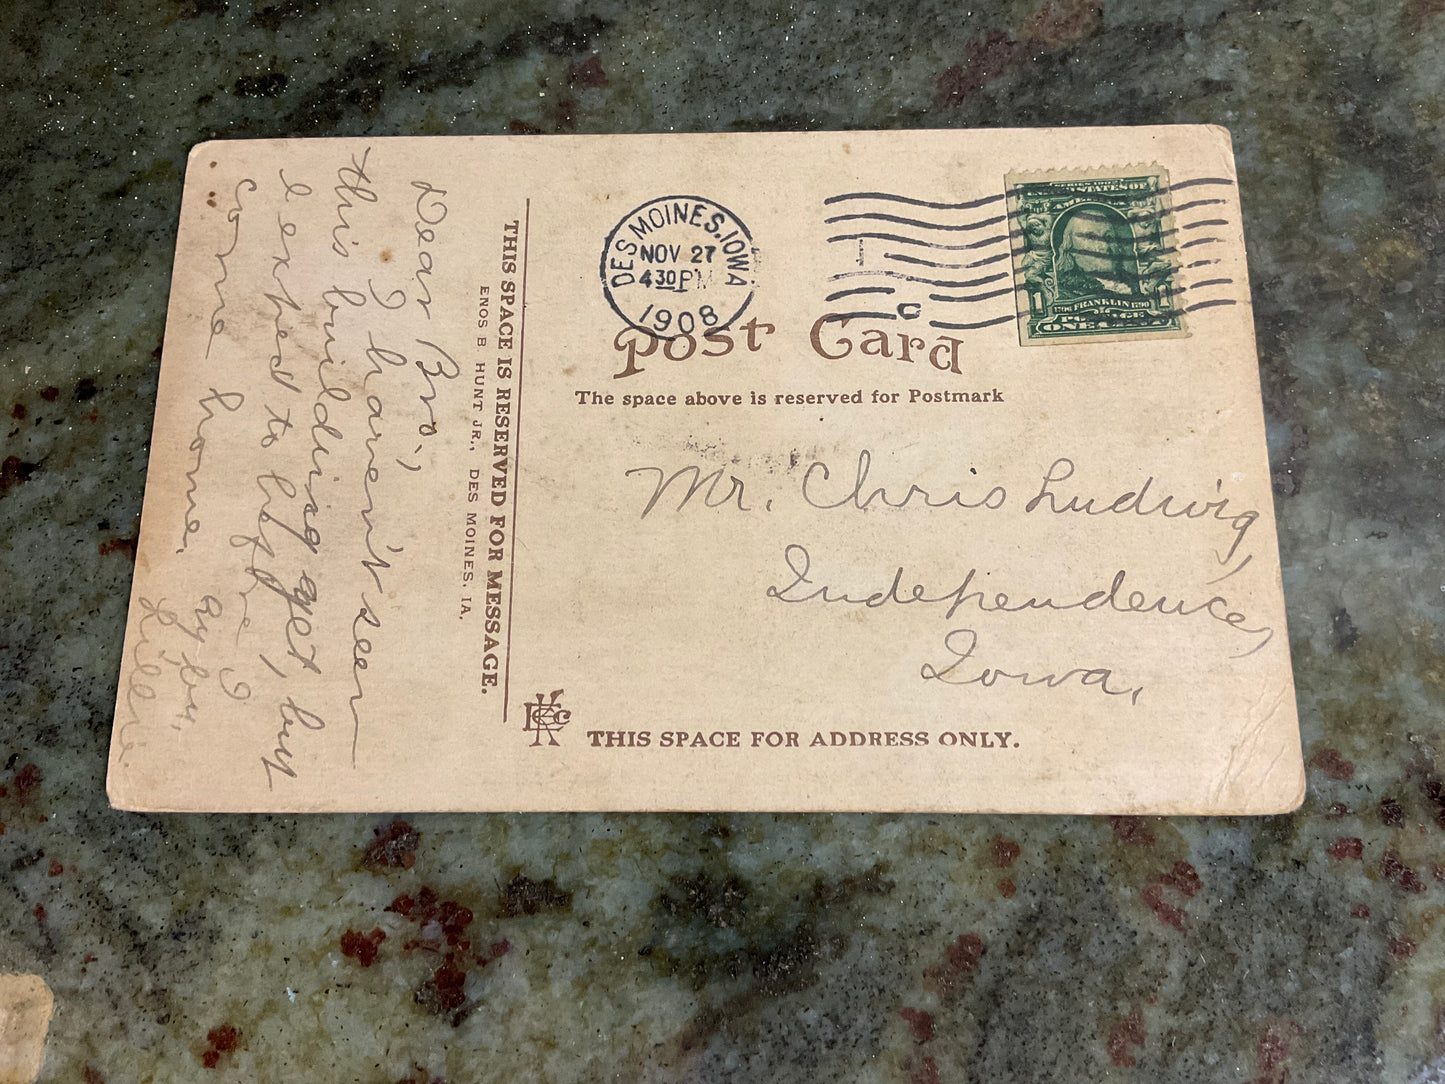 Dear Bro.,
I haven't seen
this building yet, but
I expect to before I
come home. By by,
Lillie.
THIS SPACE IS RESERVED FOR MESSAGE.
ENOS B HUNT JR., DES MOINES, IA.
DES MOINES, IOWA
NOV 27
4 30 PM
1908
1
C
SERIES 1902
UNITED STATES OF
AMERICA
1706 FRANKLIN 1790
1 1
POSTAGE
ONE CENT
Post Card
The space above is reserved for Postmark
Mr. Chris Ludwig,
Independence,
Iowa.
THIS SPACE FOR ADDRESS ONLY.